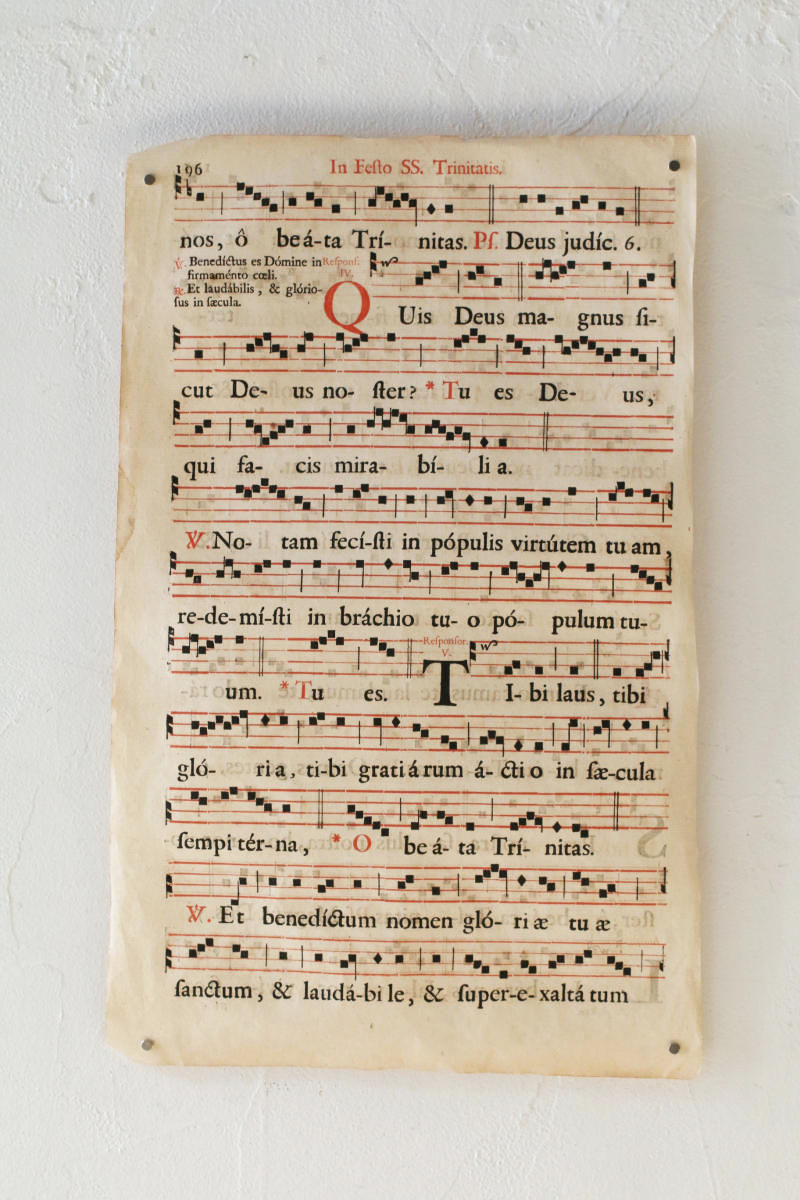 196
In Feſto SS. Trinitatis.
nos, ô beá-ta Trí- nitas. Pſ. Deus judíc. 6.
℣. Benedíctus es Dómine in
firmaménto cœli.
℟. Et laudábilis, & glório-
ſus in ſæcula.
Reſponſ.
IV.
QUis Deus ma- gnus ſi-
cut De- us no- ſter? * Tu es De- us,
qui fa- cis mira- bí- li a.
℣. No- tam fecí-ſti in pópulis virtútem tu am,
re-de-mí-ſti in bráchio tu- o pó- pulum tu-
um. * Tu es.
Reſponſor.
V.
TI- bi laus, tibi
gló- ri a, ti-bi grati árum á- cti o in ſæ-cula
ſempi tér-na, * O be á- ta Trí- nitas.
℣. Et benedíctum nomen gló- ri æ tu æ
ſanctum, & laudá-bi le, & ſuper-e-xaltá tum